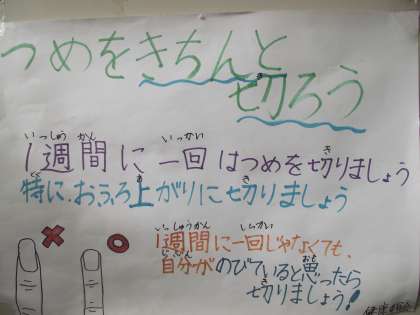 つめをきちんと
切ろう
1週間に一回はつめを切りましょう
特に、おふろ上がりに切りましょう
1週間に一回じゃなくても、
自分がのびていると思ったら
切りましょう!